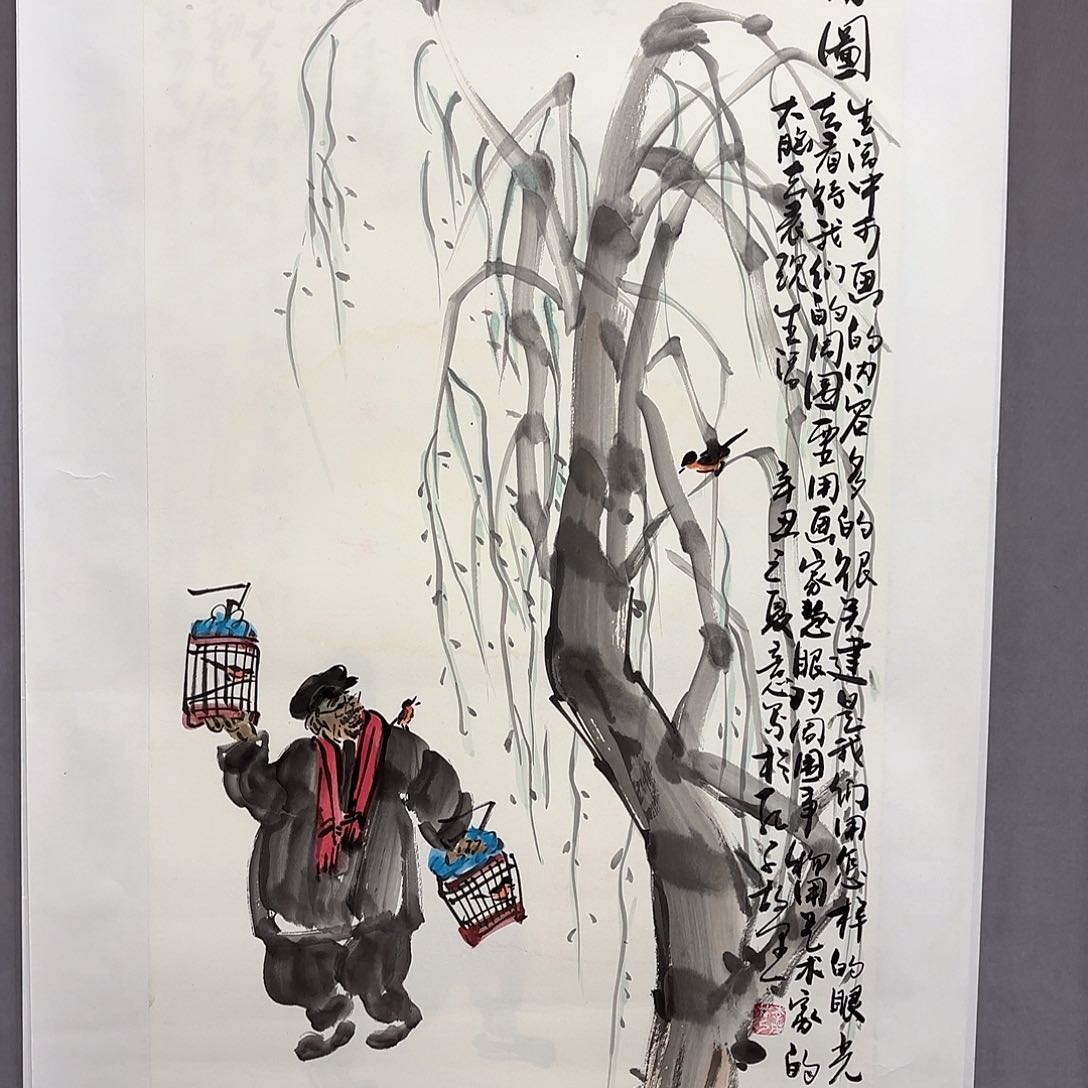 圖
生活中可画的内容多的很关建是我们用怎样的眼光
去看待我们的周围要用画家慧眼对周围事物用艺术家的
大脑去表现生活
辛丑之夏意写於